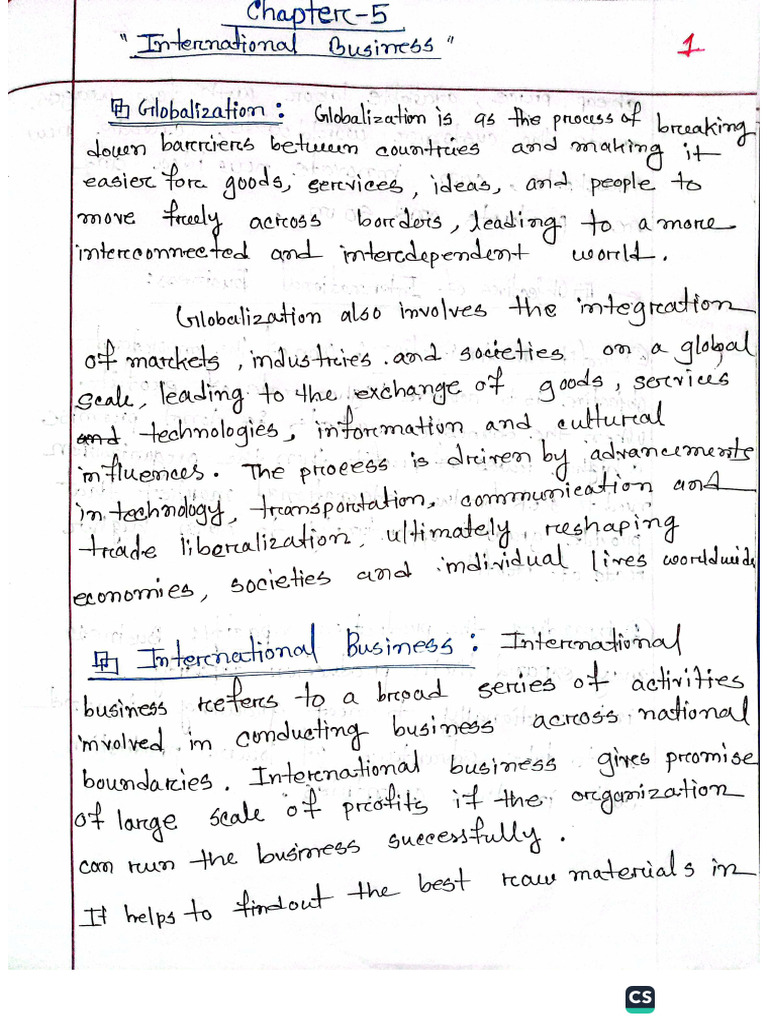 Chapter-5
"International Business"
1
Globalization: Globalization is as the process of breaking
down barriers between countries and making it
easier for goods, services, ideas, and people to
move freely across borders, leading to a more
interconnected and interdependent world.
Globalization also involves the integration
of markets, industries and societies on a global
scale, leading to the exchange of goods, services
and technologies, information and cultural
influences. The process is driven by advancements
in technology, transportation, communication and
trade liberalization, ultimately reshaping
economies, societies and individual lives worldwide
International Business: International
business refers to a broad series of activities
involved in conducting business across national
boundaries. International business gives promise
of large scale of profits if the organization
can run the business successfully.
It helps to findout the best raw materials in
CS